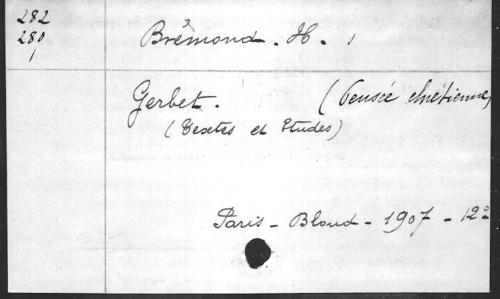 282
280
1
Brémond. H.
Gerbet. (Pensée chrétienne)
(Textes et Etudes)
Paris - Bloud - 1907 - 12º